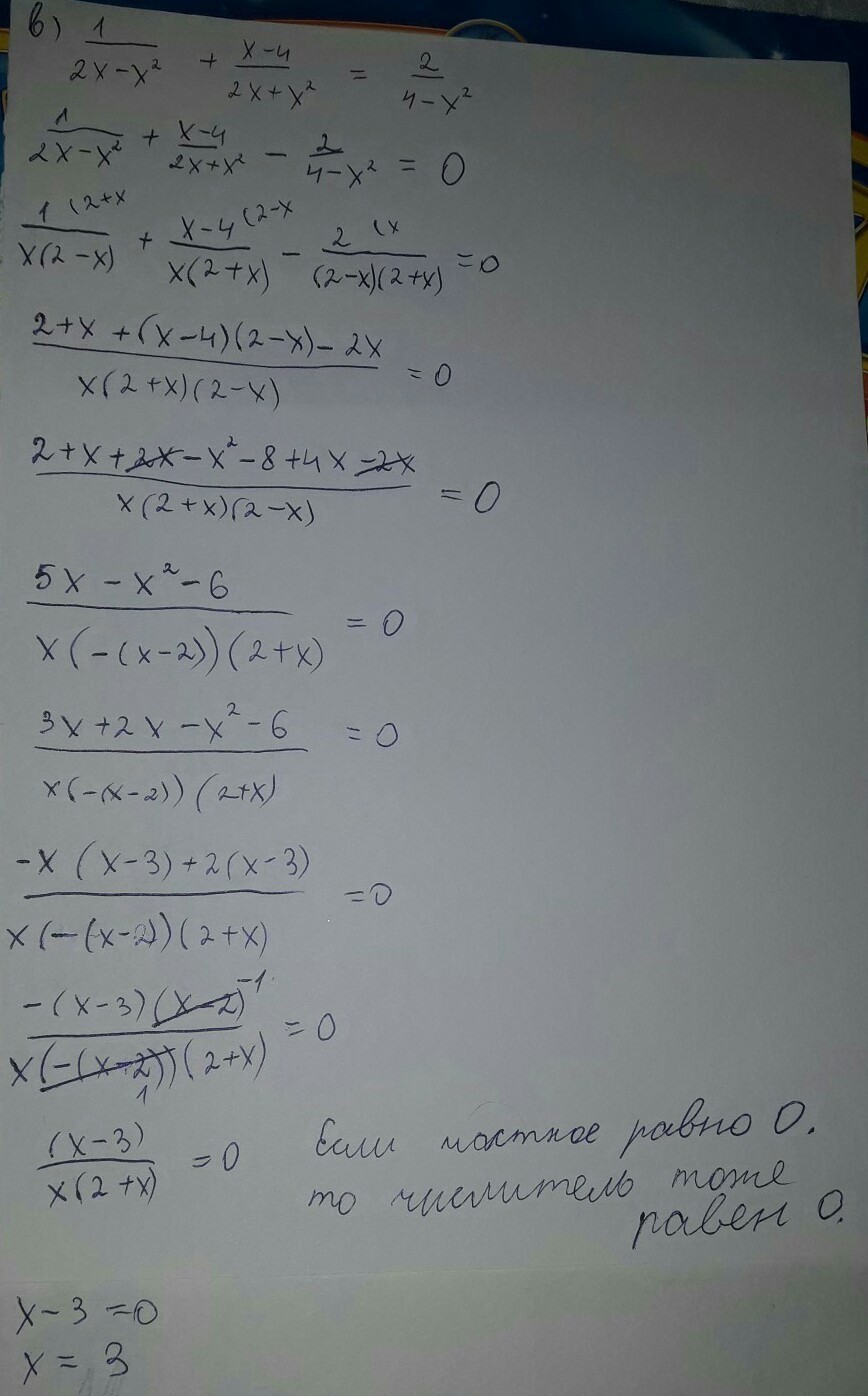 в) 1/(2x-x²) + (x-4)/(2x+x²) = 2/(4-x²)
1/(2x-x²) + (x-4)/(2x+x²) - 2/(4-x²) = 0
1 (2+x/(x(2-x)) + x-4 (2-x/(x(2+x)) - 2 (x/((2-x)(2+x)) = 0
(2+x+(x-4)(2-x)-2x)/(x(2+x)(2-x)) = 0
(2+x+2x-x²-8+4x-2x)/(x(2+x)(2-x)) = 0
(5x-x²-6)/(x(-(x-2))(2+x)) = 0
(3x+2x-x²-6)/(x(-(x-2))(2+x)) = 0
(-x(x-3)+2(x-3))/(x(-(x-2))(2+x)) = 0
(-(x-3)(x-2)⁻¹)/(x(-(x-2))1(2+x)) = 0
(x-3)/(x(2+x)) = 0
Если частное равно 0.
то числитель тоже
равен 0.
x-3=0
x=3